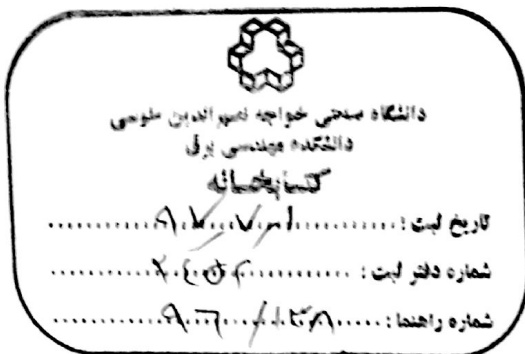 دانشگاه صنعتی خواجه نصیرالدین طوسی
دانشکده مهندسی برق
کتابخانه
تاریخ ثبت :
شماره دفتر ثبت :
شماره راهنما :